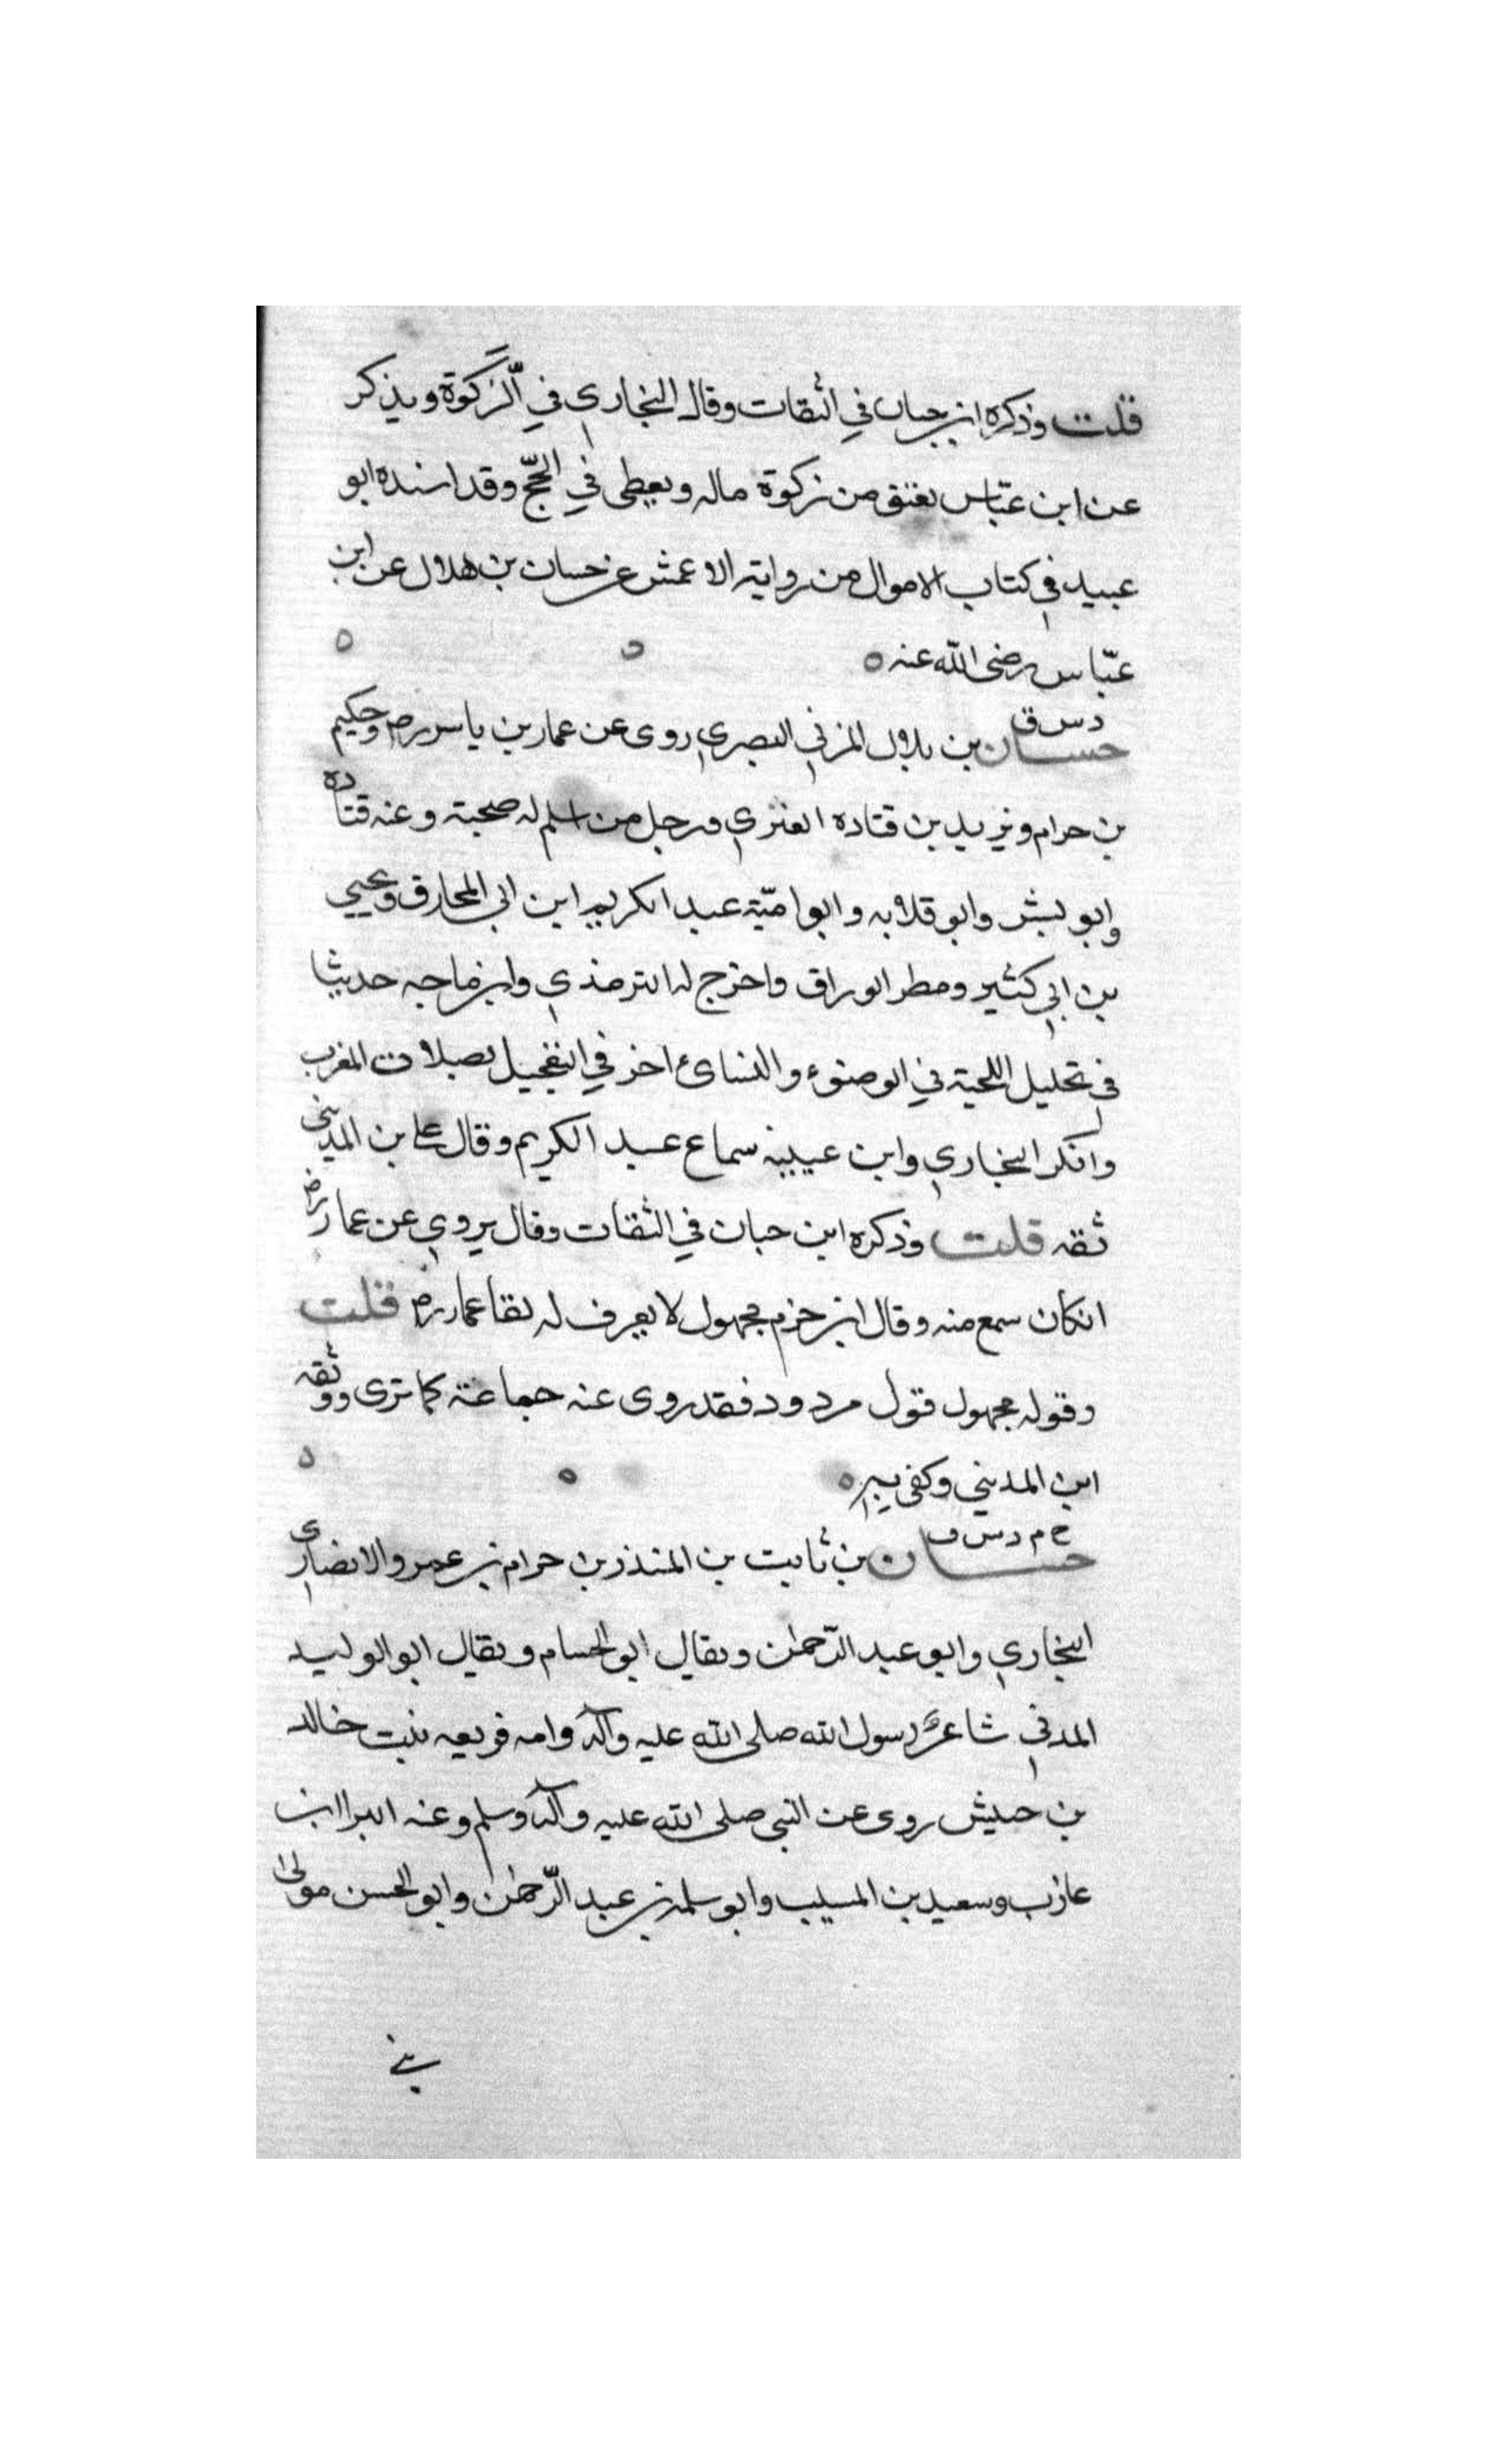 قلت وذكره ابن حبان في الثقات وقال البخاري في الزكوة ويذكر
عن ابن عباس يعتق من زكوة ماله ويعطى في الحج وقد اسنده ابو
عبيد في كتاب الاموال من رواية الاعمش عن حسان بن هلال عن ابن
عباس رضى الله عنه ه ه ه
د س ق
حسان بن بلال المزني البصري روى عن عمار بن ياسر رض وحكيم
بن حرام ويزيد بن قتاده العنزي ورجل من اسلم له صحبة وعنه قتاده
وابو بشر وابو قلابه وابو امية عبد الكريم ابن ابي المخارق ويحيى
بن ابي كثير ومطر الوراق واخرج له الترمذي وابن ماجه حديثا
في تخليل اللحية في الوضوء والنسائ اخر في التعجيل بصلات المغرب
وانكر البخاري وابن عيينه سماع عبد الكريم وقال على بن المديني
ثقه قلت وذكره ابن حبان في الثقات وقال يروي عن عمار رض
انكان سمع منه وقال ابن حزم مجهول لا يعرف له لقا عمار رض قلت
وقوله مجهول قول مردود فقد روى عنه جماعة كما ترى ووثقه
ابن المديني وكفى به ه ه ه
خ م د س ق
حسان بن ثابت بن المنذر بن حرام بن عمرو الانصاري
النجاري وابو عبد الرحمن ويقال ابو الحسام ويقال ابو الوليد
المدني شاعر رسول الله صلى الله عليه وآله وامه فريعه بنت خالد
بن حبيش روى عن النبي صلى الله عليه وآله وسلم وعنه البرا ابن
عازب وسعيد بن المسيب وابو سلمة بن عبد الرحمن وابو الحسن مولى
بني